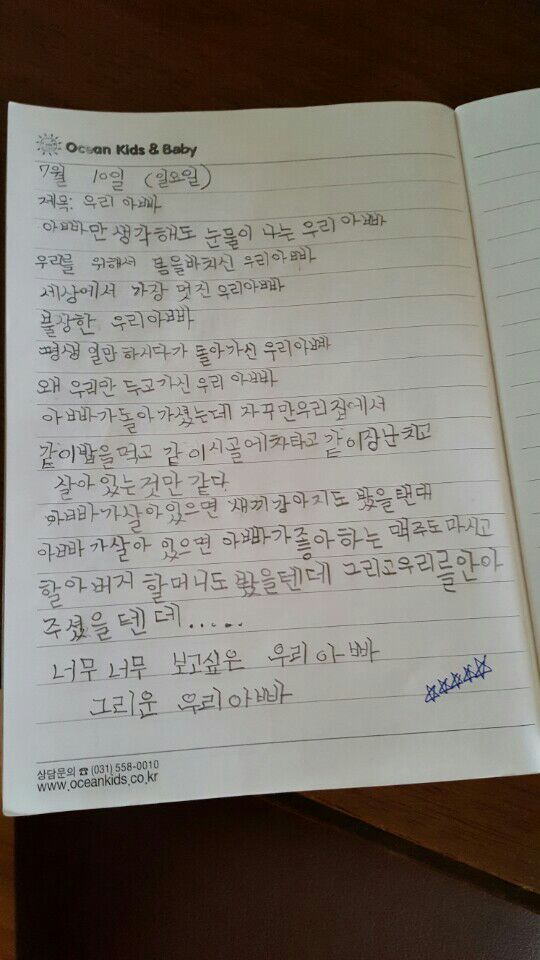 Ocean Kids & Baby
7월 10일 (일요일)
제목: 우리 아빠
아빠만 생각해도 눈물이 나는 우리 아빠
우리를 위해서 몸을바치신 우리아빠
세상에서 가장 멋진 우리아빠
불상한 우리아빠
평생 일만 하시다가 돌아가신 우리아빠
왜 우리만 두고가신 우리 아빠
아빠가돌아가셨는데 자꾸만우리집에서
같이밥을먹고 같이시골에차타고 같이장난치고
살아있는것만 같다
아빠가살아있으면 새끼강아지도 봤을탠대
아빠가살아 있으면 아빠가좋아하는 맥주도마시고
할아버지 할머니도 봤을텐데 그리고우리를안아
주셨을텐데.....
너무너무 보고싶은 우리아빠
그리운 우리아빠
☆☆☆☆☆
상담문의 ☎ (031) 558-0010
www.oceankids.co.kr